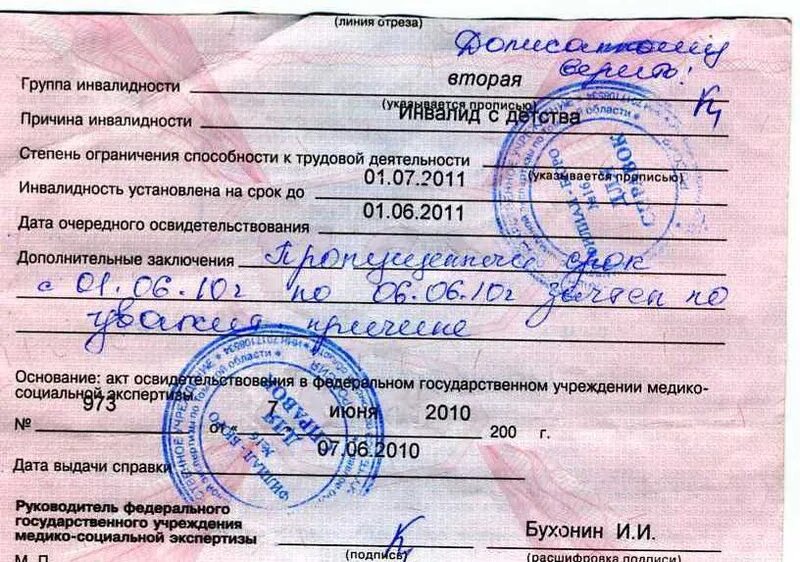 (линия отреза)
Дописанному
верить!
Группа инвалидности вторая
(указывается прописью)
Причина инвалидности Инвалид с детства
Степень ограничения способности к трудовой деятельности
(указывается прописью)
Инвалидность установлена на срок до 01.07.2011
Дата очередного освидетельствования 01.06.2011
Дополнительные заключения Пропущенный срок
с 01.06.10г по 06.06.10г зачтен по
уважит причине
Основание: акт освидетельствования в федеральном государственном учреждении медико-
социальной экспертизы
№ 973 от " 7 июня 2010 200 г.
Дата выдачи справки 07.06.2010
Руководитель федерального
государственного учреждения
медико-социальной экспертизы Бухонин И.И.
(подпись) (расшифровка подписи)
М.П.
ФИЛИАЛ - БЮРО
№16
ДЛЯ
СПРАВОК
ФИЛИАЛ - БЮРО
№16
ДЛЯ
СПРАВОК